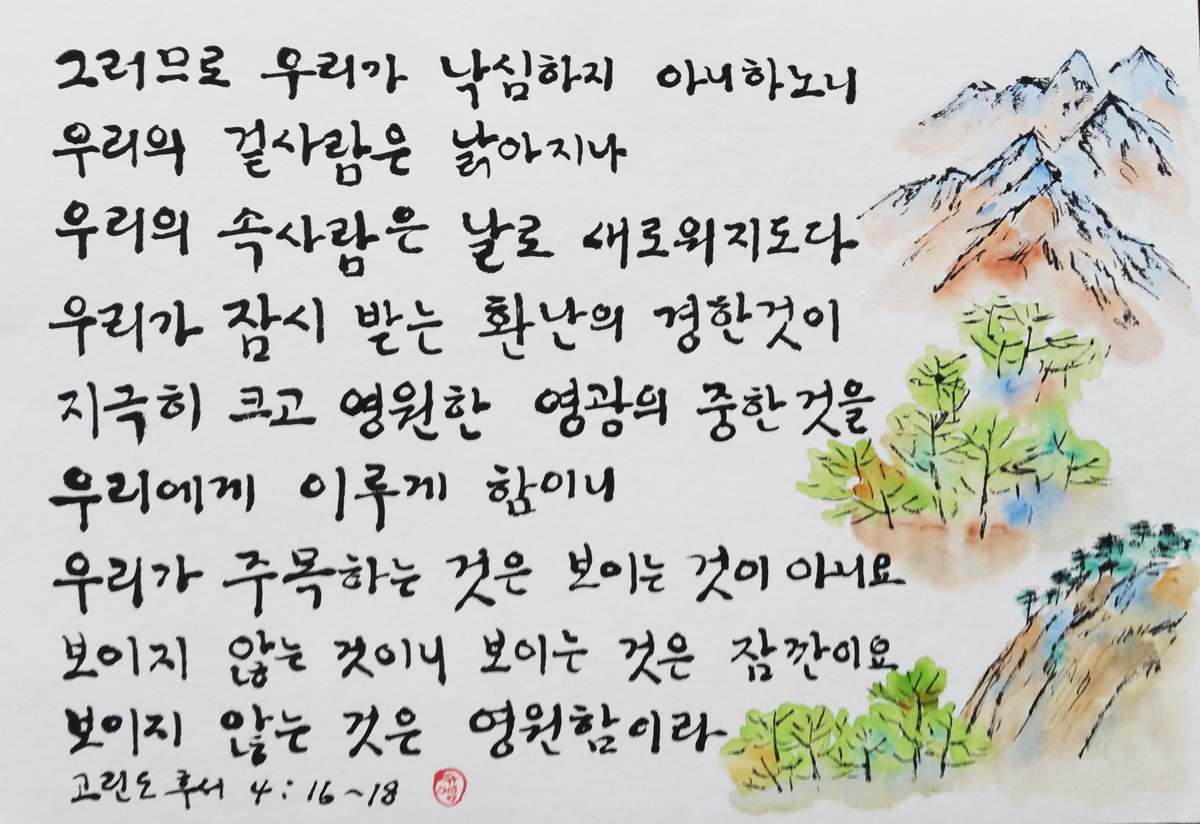 그러므로 우리가 낙심하지 아니하노니
우리의 겉사람은 낡아지나
우리의 속사람은 날로 새로워지도다
우리가 잠시 받는 환난의 경한것이
지극히 크고 영원한 영광의 중한것을
우리에게 이루게 함이니
우리가 주목하는 것은 보이는 것이 아니요
보이지 않는 것이니 보이는 것은 잠깐이요
보이지 않는 것은 영원함이라
고린도후서 4:16~18